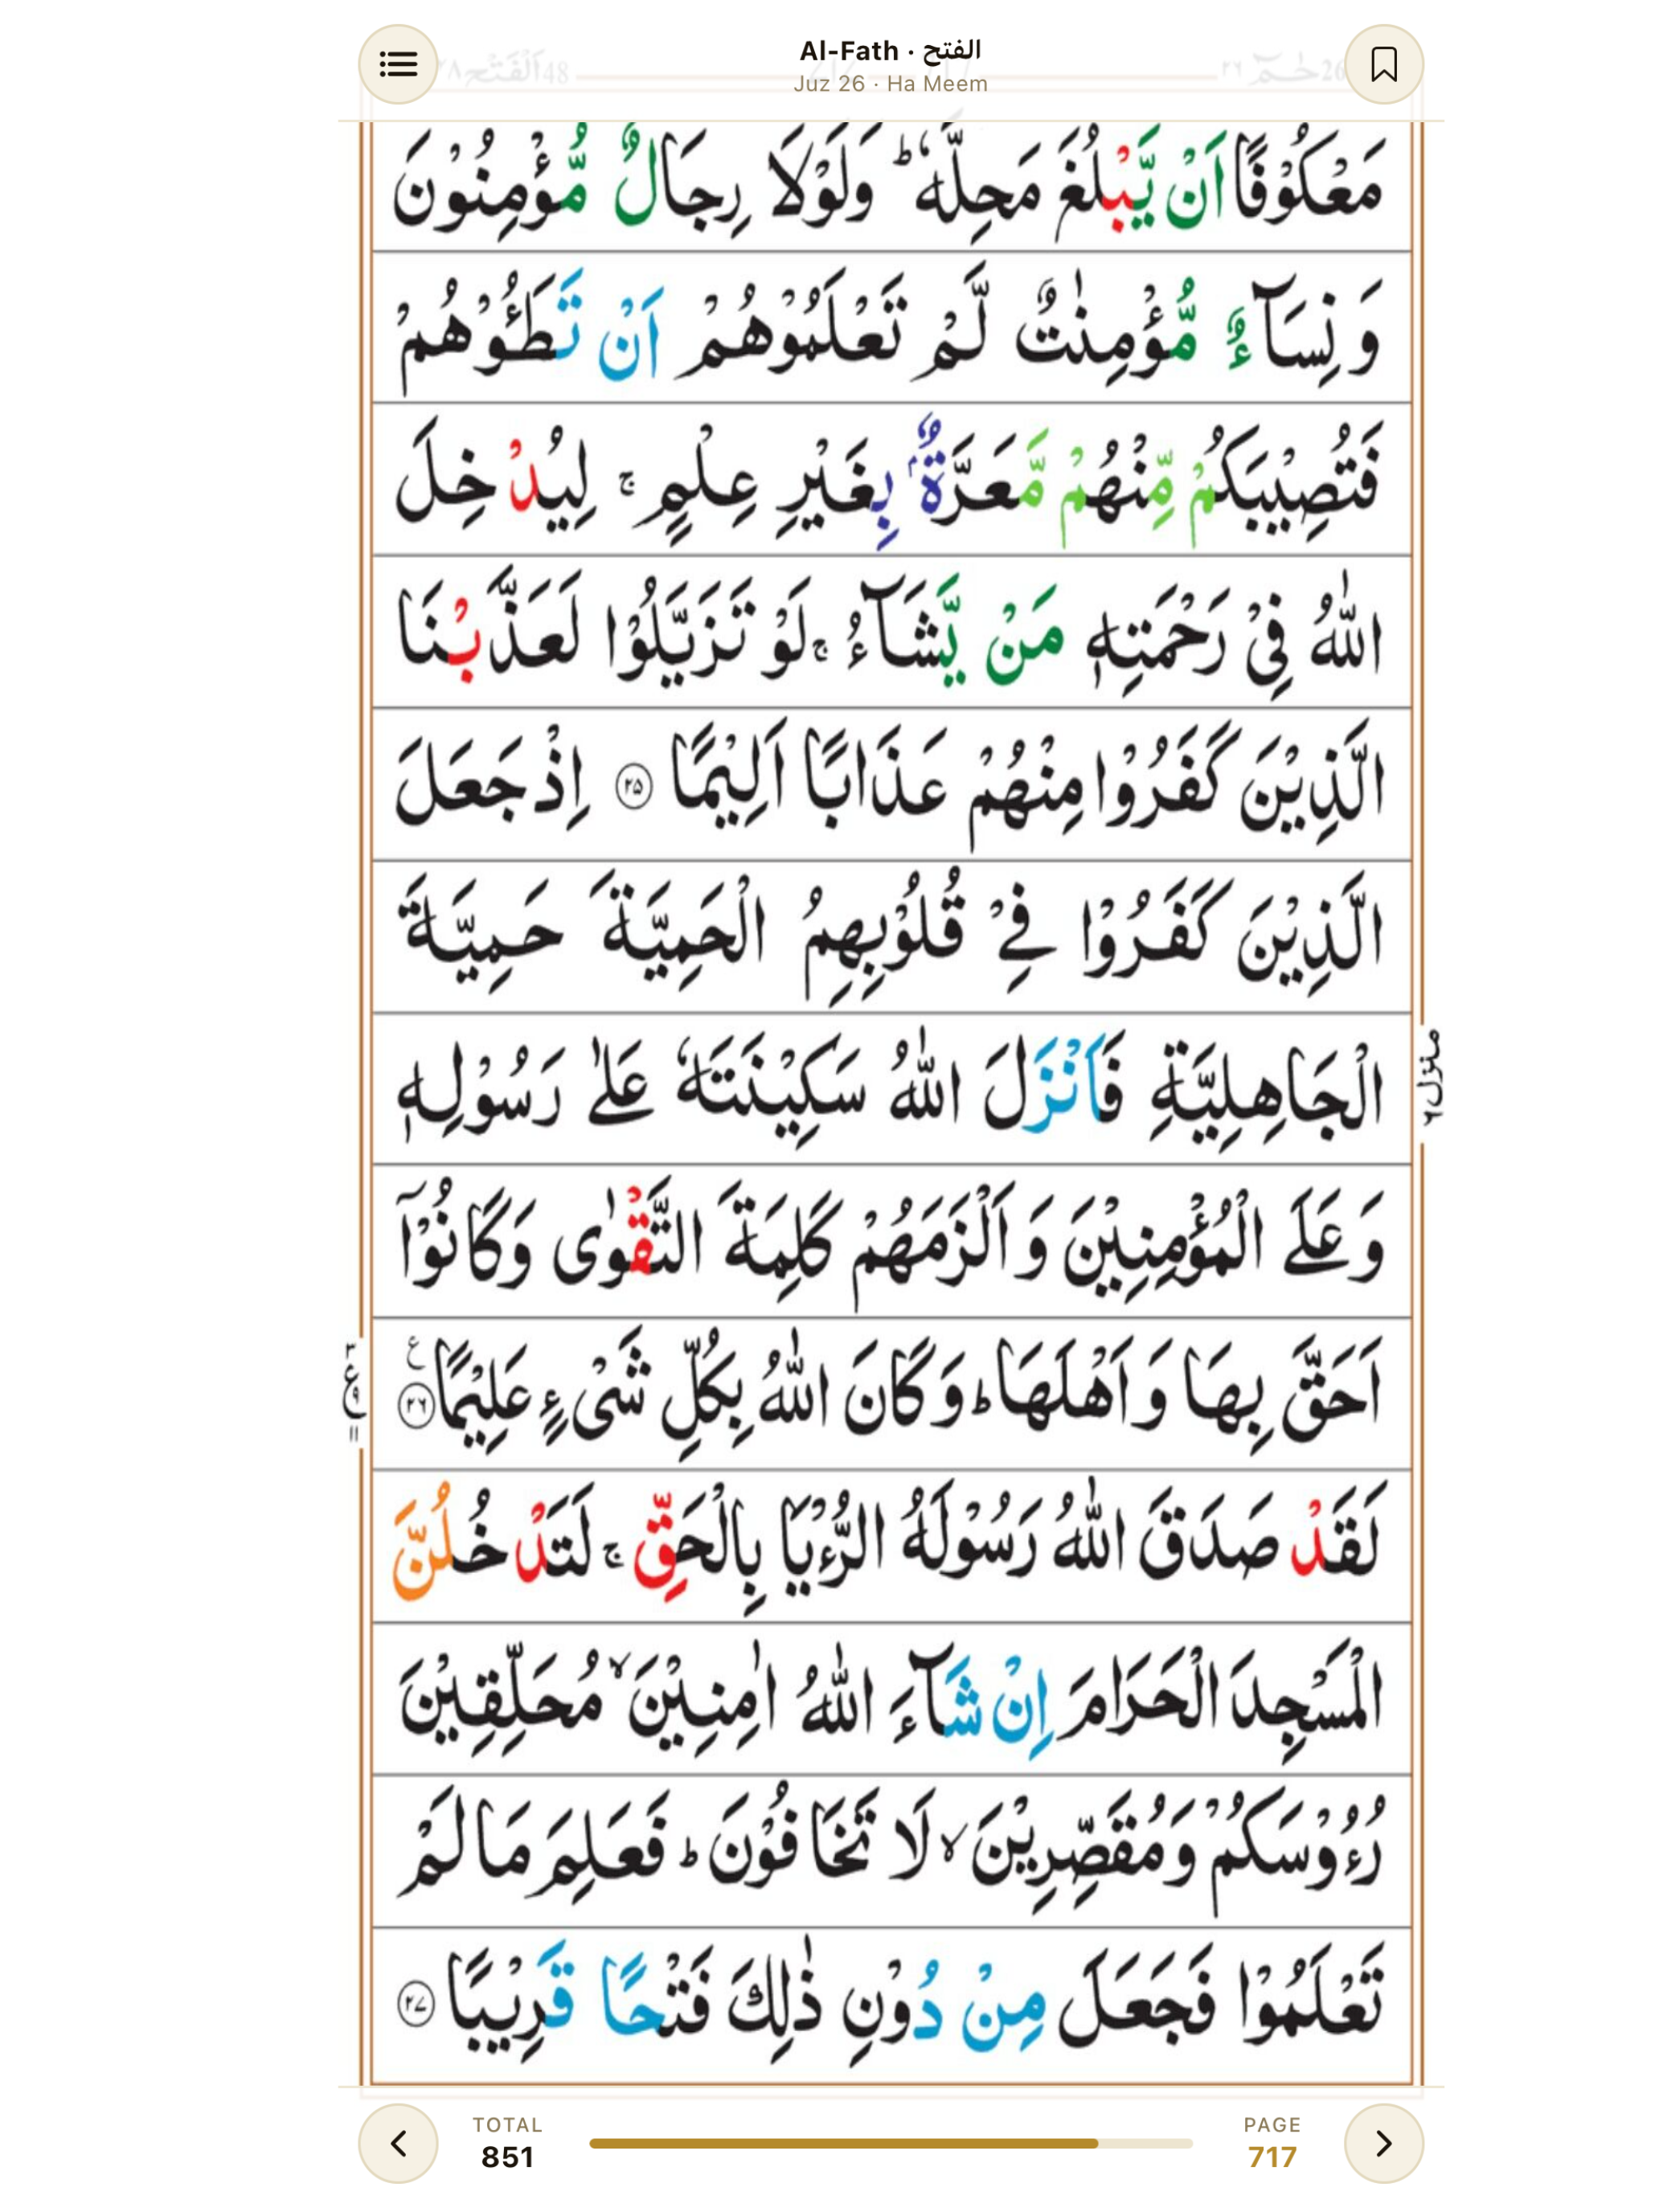 Al-Fath · الفتح
Juz 26 · Ha Meem
مَعْكُوْفًا اَنْ يَّبْلُغَ مَحِلَّهٗ ؕ وَلَوْلَا رِجَالٌ مُّؤْمِنُوْنَ
وَنِسَآءٌ مُّؤْمِنٰتٌ لَّمْ تَعْلَمُوْهُمْ اَنْ تَطَـُٔوْهُمْ
فَتُصِيْبَكُمْ مِّنْهُمْ مَّعَرَّةٌۢ بِغَيْرِ عِلْمٍ ۚ لِيُدْخِلَ
اللّٰهُ فِىْ رَحْمَتِهٖ مَنْ يَّشَآءُ ۚ لَوْ تَزَيَّلُوْا لَعَذَّبْنَا
الَّذِيْنَ كَفَرُوْا مِنْهُمْ عَذَابًا اَلِيْمًا ۝۲۵ اِذْ جَعَلَ
الَّذِيْنَ كَفَرُوْا فِيْ قُلُوْبِهِمُ الْحَمِيَّةَ حَمِيَّةَ
الْجَاهِلِيَّةِ فَاَنْزَلَ اللّٰهُ سَكِيْنَتَهٗ عَلٰى رَسُوْلِهٖ
وَعَلَى الْمُؤْمِنِيْنَ وَاَلْزَمَهُمْ كَلِمَةَ التَّقْوٰى وَكَانُوْۤا
اَحَقَّ بِهَا وَاَهْلَهَا ؕ وَكَانَ اللّٰهُ بِكُلِّ شَىْءٍ عَلِيْمًا ۝۲۶ ع
لَقَدْ صَدَقَ اللّٰهُ رَسُوْلَهُ الرُّءْيَا بِالْحَقِّ ۚ لَتَدْخُلُنَّ
الْمَسْجِدَ الْحَرَامَ اِنْ شَآءَ اللّٰهُ اٰمِنِيْنَ ۙ مُحَلِّقِيْنَ
رُءُوْسَكُمْ وَمُقَصِّرِيْنَ ۙ لَا تَخَافُوْنَ ؕ فَعَلِمَ مَا لَمْ
تَعْلَمُوْا فَجَعَلَ مِنْ دُوْنِ ذٰلِكَ فَتْحًا قَرِيْبًا ۝۲۷
منزل ۶
TOTAL
851
PAGE
717